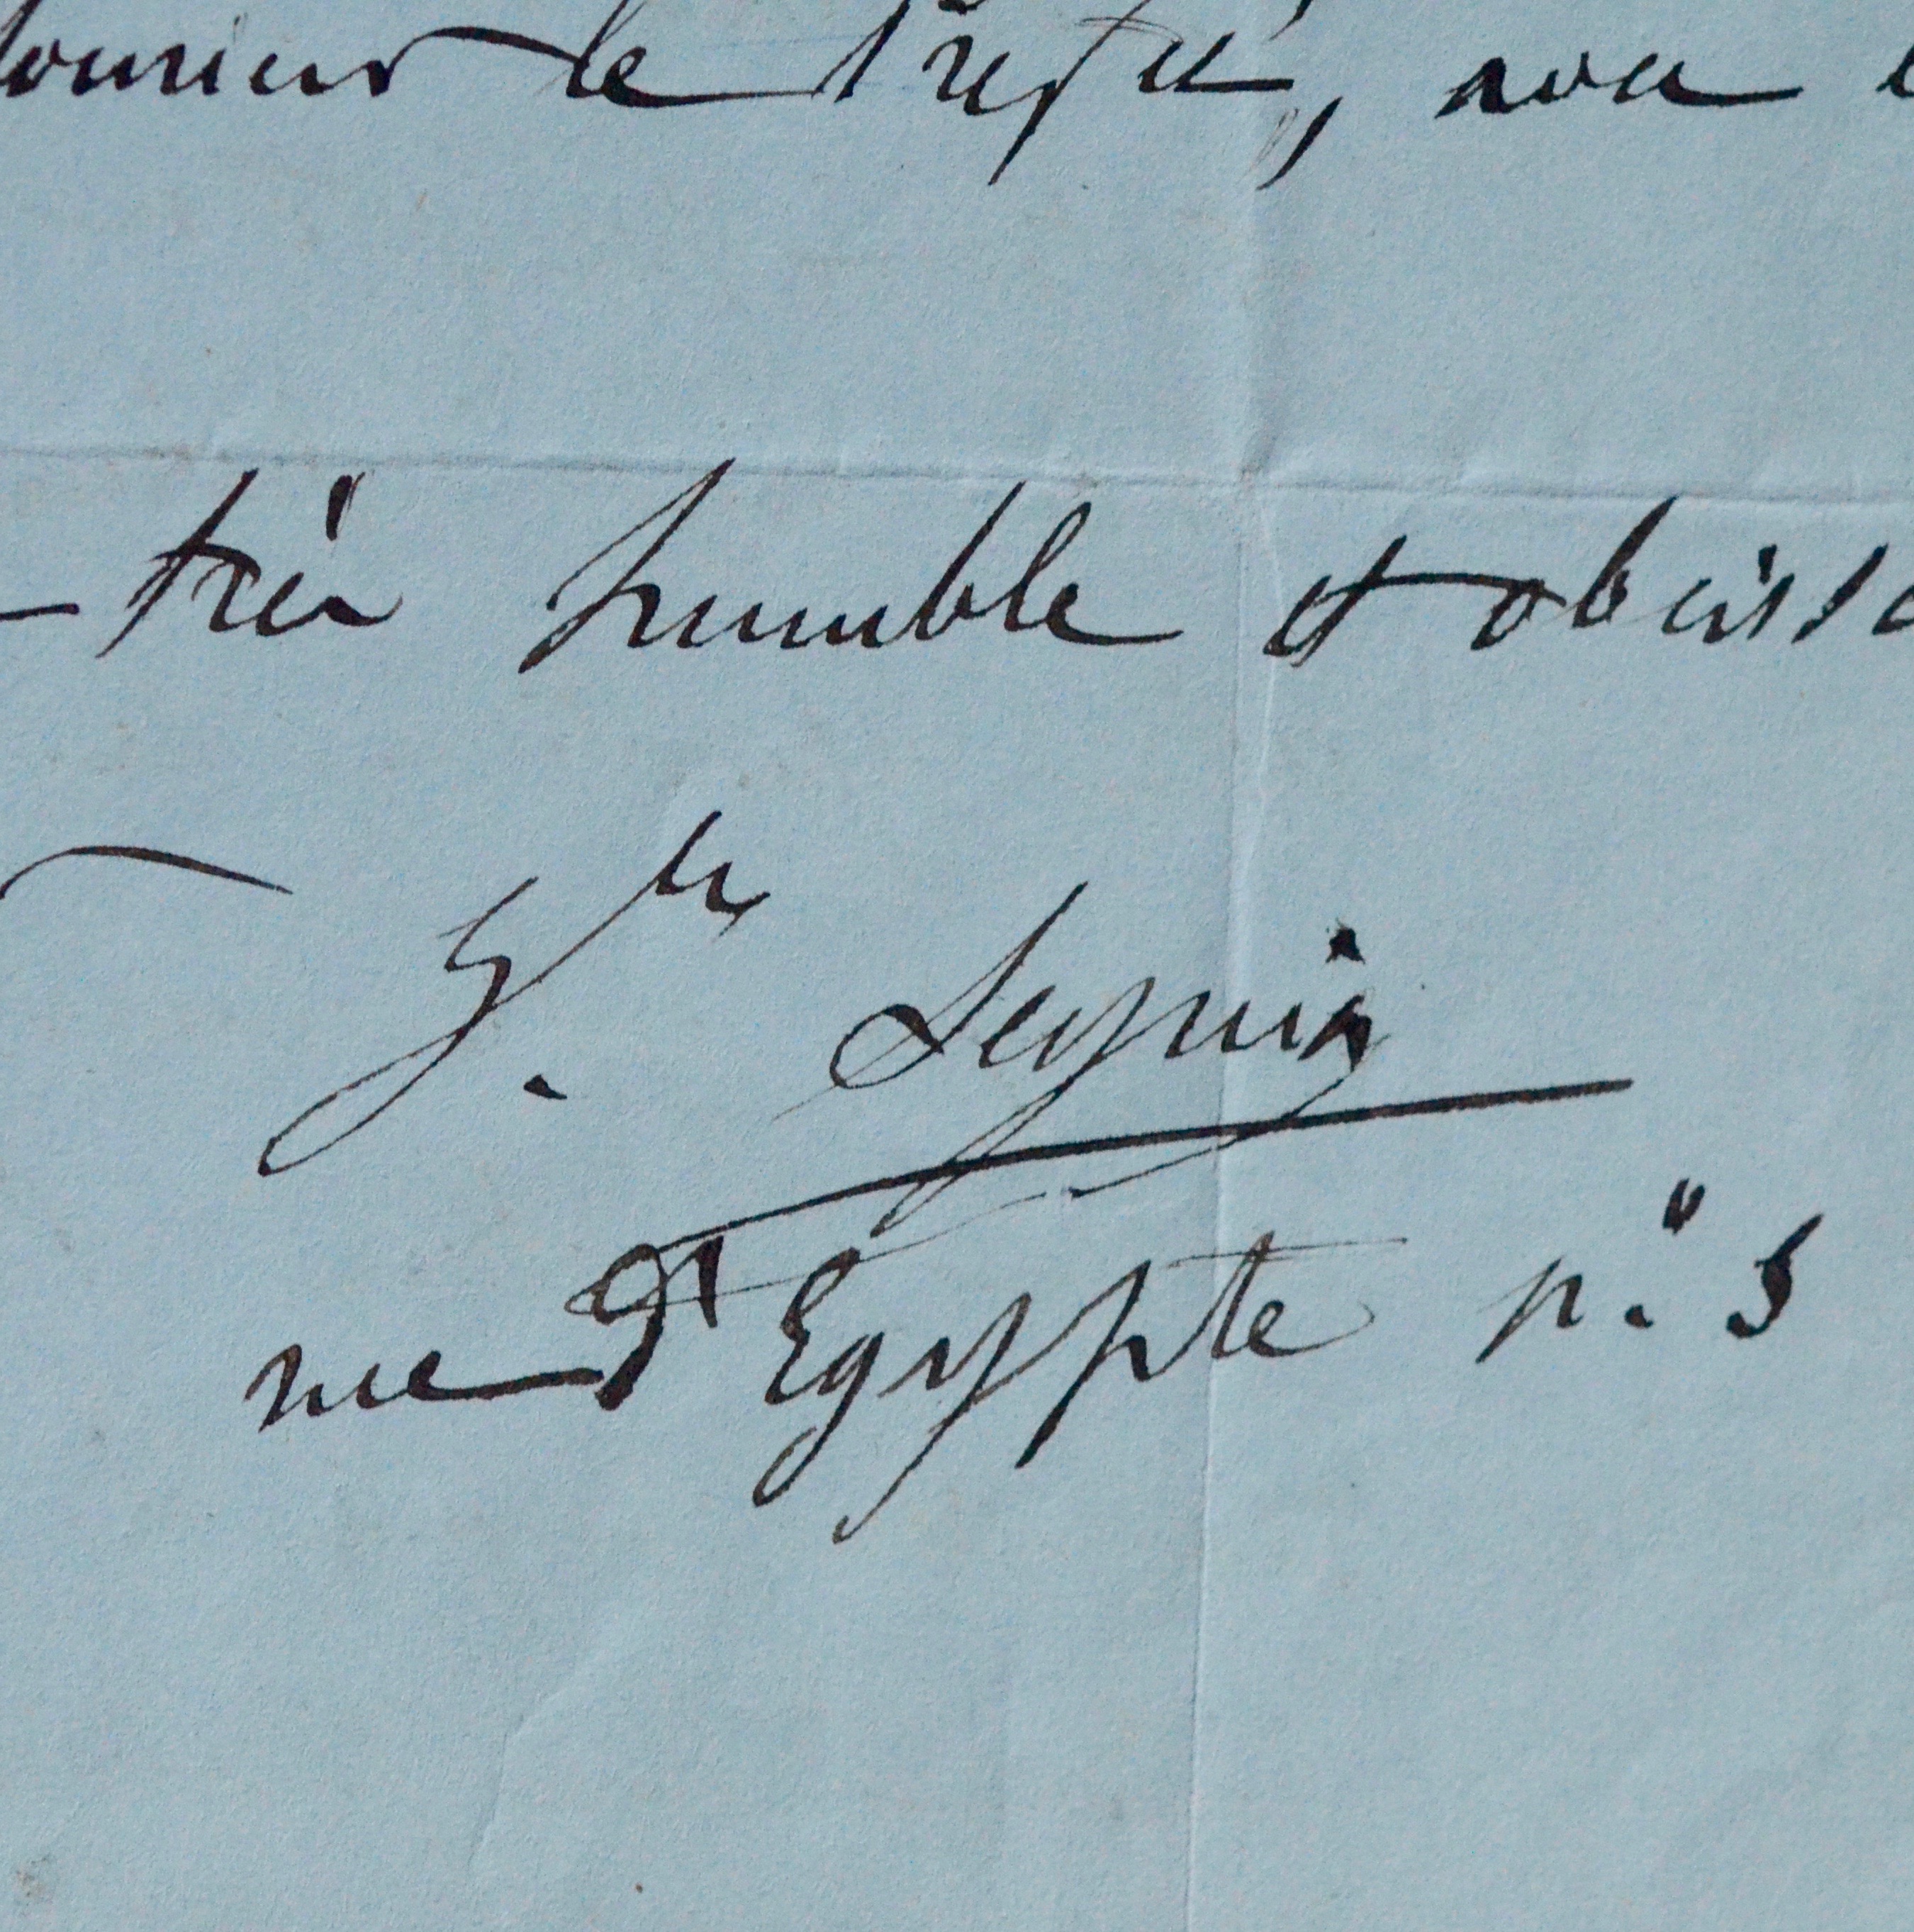 Monsieur le Préfet, avec
très humble et obéiss
Seguin
rue d'Egypte n.° 3